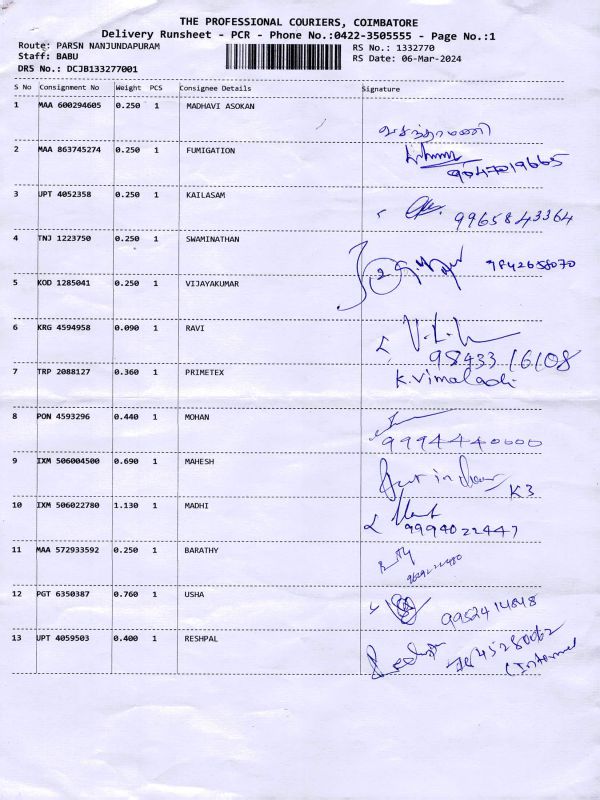 THE PROFESSIONAL COURIERS, COIMBATORE
Delivery Runsheet - PCR - Phone No.:0422-3505555 - Page No.:1
Route: PARSN NANJUNDAPURAM
RS No.: 1332770
Staff: BABU
RS Date: 06-Mar-2024
DRS No.: DCJB133277001
S No Consignment No Weight PCS Consignee Details Signature
1 MAA 600294605 0.250 1 MADHAVI ASOKAN
வசந்தாமணி
2 MAA 863745274 0.250 1 FUMIGATION
9047019665
3 UPT 4052358 0.250 1 KAILASAM
9965843364
4 TNJ 1223750 0.250 1 SWAMINATHAN
9842658070
5 KOD 1285041 0.250 1 VIJAYAKUMAR
6 KRG 4594958 0.090 1 RAVI
98433 16108
7 TRP 2088127 0.360 1 PRIMETEX
K.Vimaladi
8 PON 4593296 0.440 1 MOHAN
9994440000
9 IXM 506004500 0.690 1 MAHESH
K3
10 IXM 506022780 1.130 1 MADHI
9994022447
11 MAA 572933592 0.250 1 BARATHY
12 PGT 6350387 0.760 1 USHA
9952414848
13 UPT 4059503 0.400 1 RESHPAL